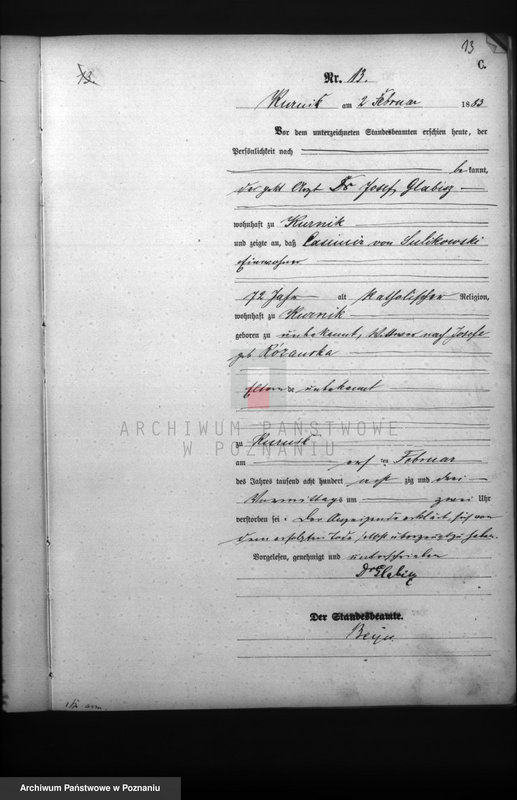 13
C.
13.
Nr. 13.
Kurnik am 2 Februar 1883
Vor dem unterzeichneten Standesbeamten erschien heute, der
Persönlichkeit nach
bekannt,
der prakt Arzt Dr Josef Glabisz
wohnhaft zu Kurnik
und zeigte an, daß Casimir von Sulikowski
Einwohner
72 Jahr alt Katholischer Religion,
wohnhaft zu Kurnik
geboren zu unbekannt, Wittwer nach Josefa
geb Rózanska
Eltern unbekannt
ARCHIWUM PAŃSTWOWE
W POZNANIU
zu Kurnik
am ersten Februar
des Jahres tausend acht hundert achtzig und drei
Vormittags um zwei Uhr
verstorben sei. Der Anzeigende erklärt, sich von
dem erfolgten Tode selbst überzeugt zu haben.
Vorgelesen, genehmigt und unterschrieben
Dr Glabisz
Der Standesbeamte.
Archiwum Państwowe w Poznaniu